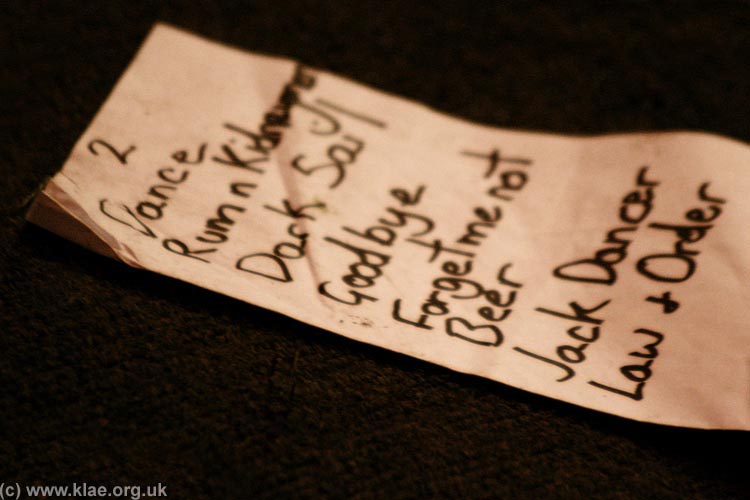 2
Dance
Rum n
Dark Sail
Goodbye
Forgetmenot
Beer
Jack Dancer
Law + Order
(c) www.klae.org.uk